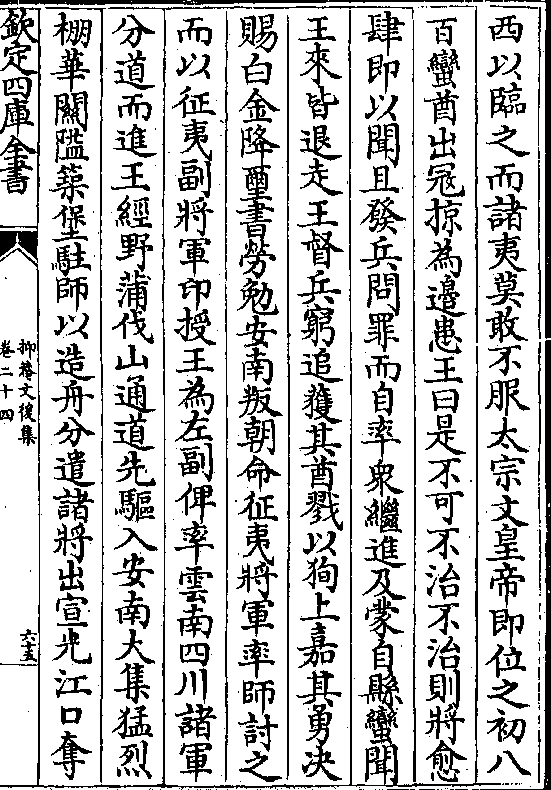 西以臨之而諸夷莫敢不服太宗文皇帝即位之初八
百蠻酋出冦掠為邉患王曰是不可不治不治則將愈
肆即以聞且發兵問罪而自率衆繼進及蒙自縣蠻聞
王來皆退走王督兵窮追獲其酋戮以狥上嘉其勇決
賜白金降璽書勞勉安南叛朝命征夷將軍率師討之
而以征夷副將軍印授王為左副俾率雲南四川諸軍
分道而進王經野蒲伐山通道先驅入安南大集猛烈
棚華關隘築堡駐師以造舟分遣諸將出宣光江口奪
欽定四庫全書
抑菴文後集
卷二十四
六十五